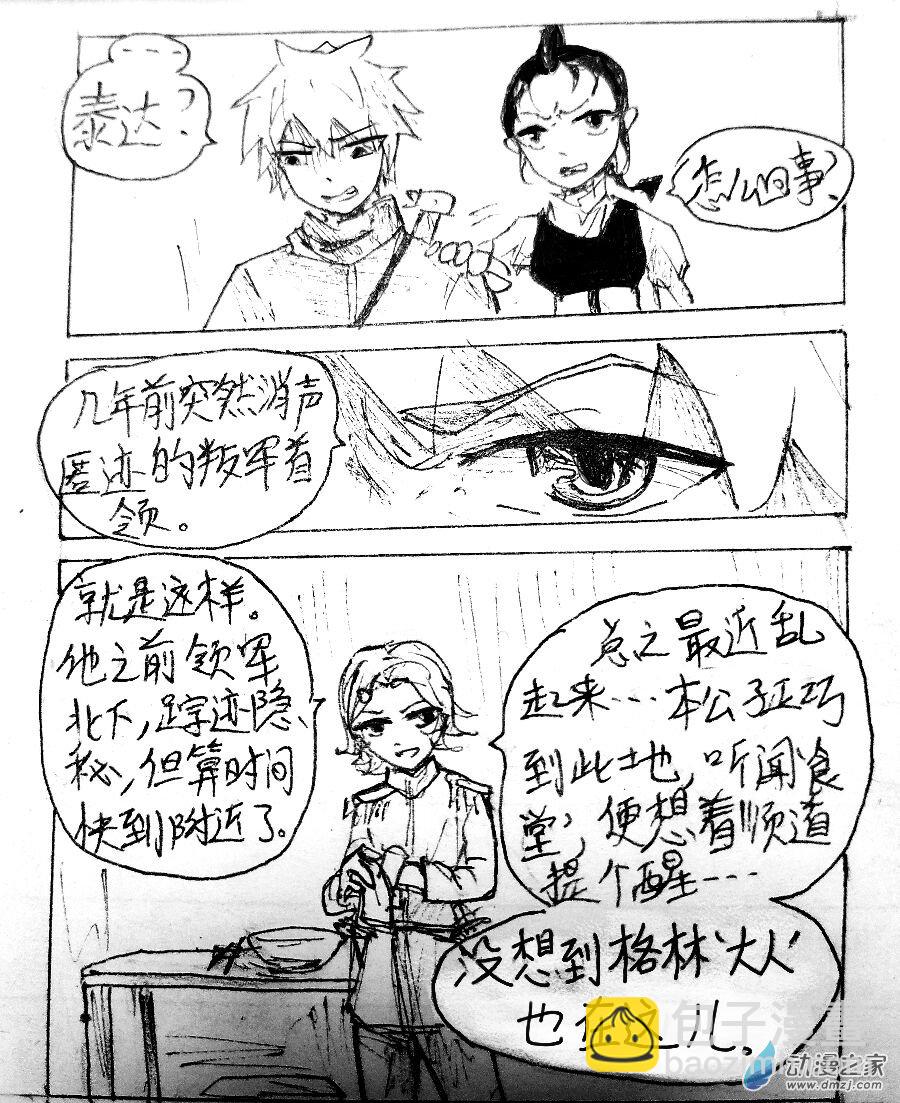 ---
泰达?
怎么回事?
几年前突然消声
匿迹的叛军首
领。
就是这样。
他之前领军
北下,踪迹隐
秘,但算时间
快到附近了。
总之最近乱
起来...本公子正巧
到此地,听闻食
堂,便想着顺道
提个醒----
没想到格林“大人”
也 儿。
包子漫
baozi
动漫之家
www.dmzj.com